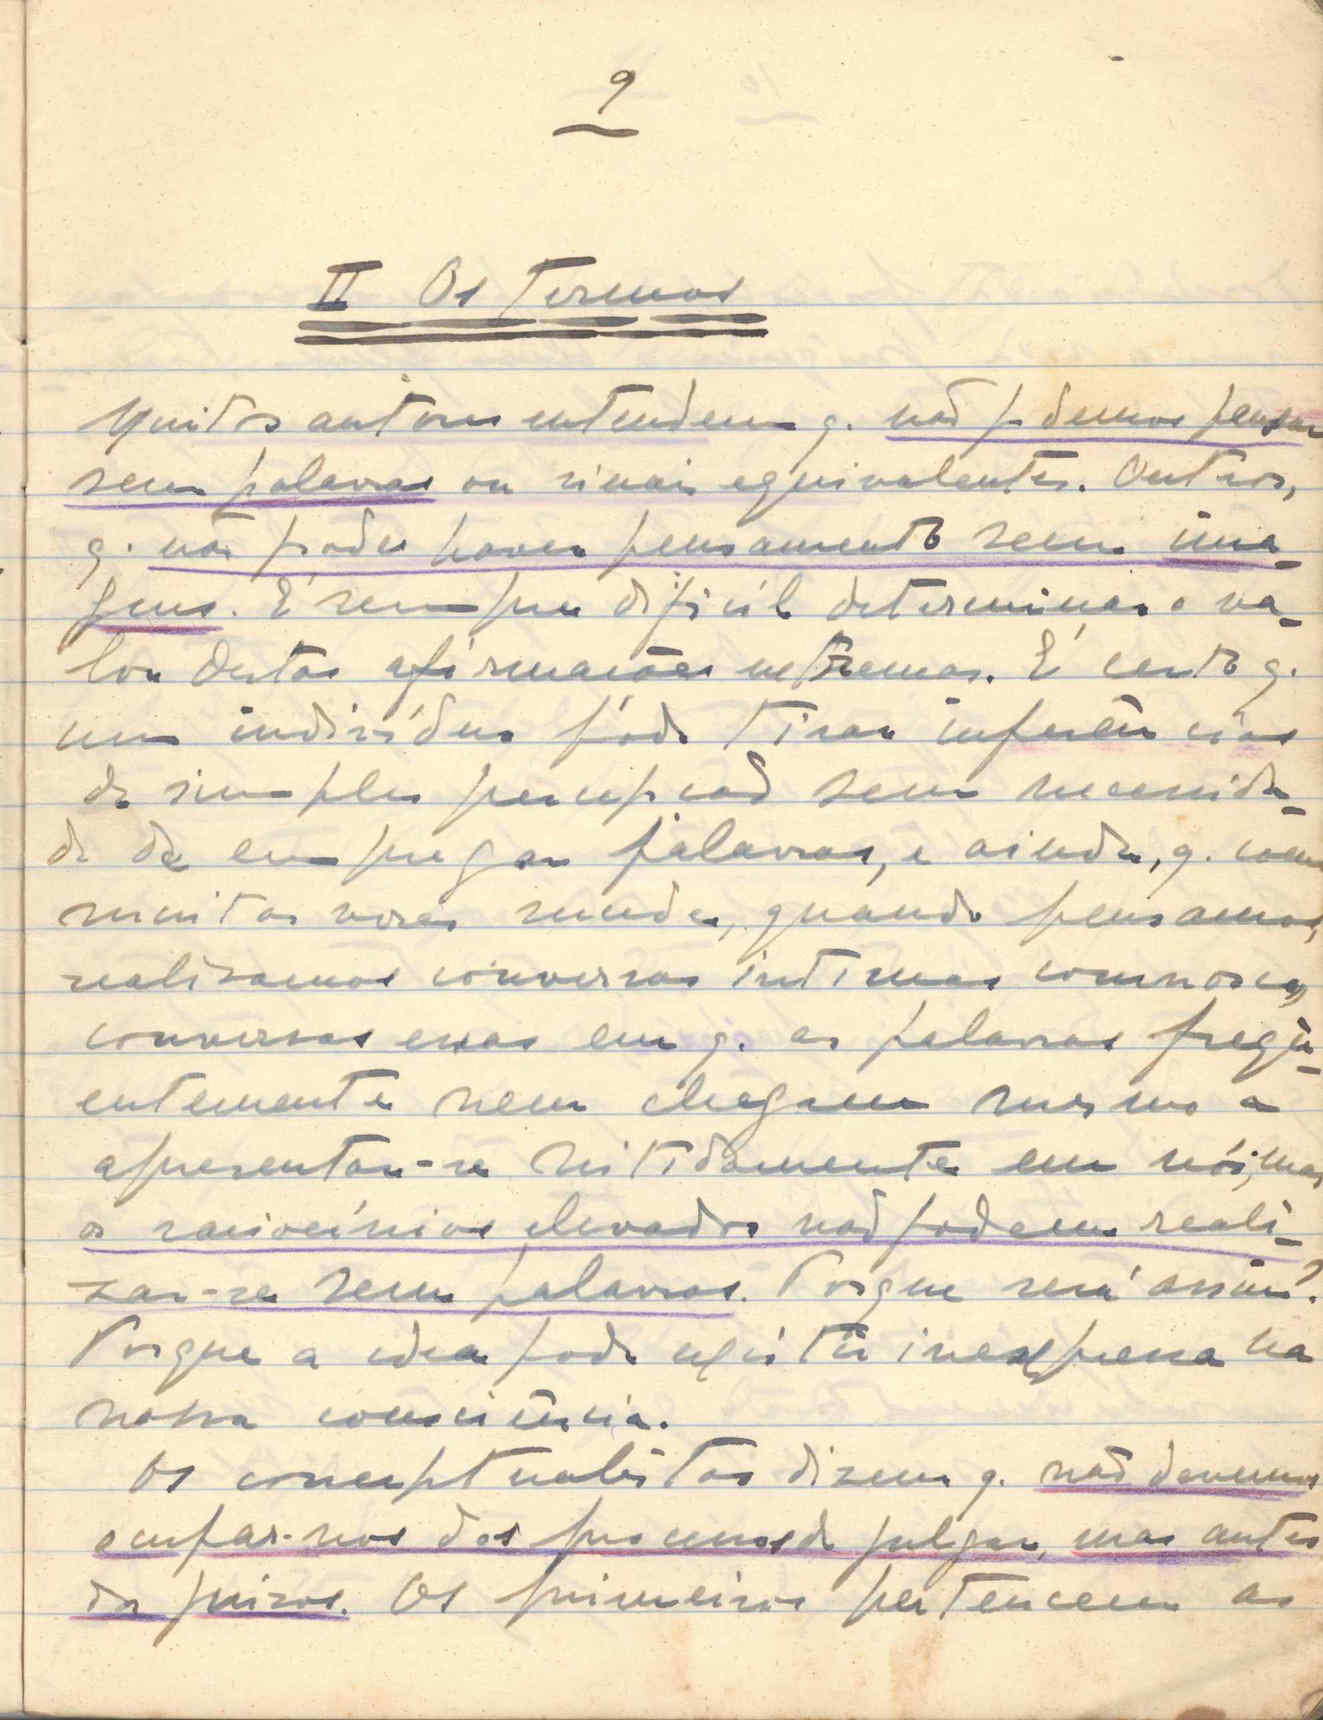 9
II Os Termos
Muitos autores entendem q. não podemos pensar
sem palavras ou sinais equivalentes. Outros,
q. não podes haver pensamento sem ima-
gens. É sempre difícil determinar o va-
lor destas afirmacões extremas. É certo q.
um indivíduo póde tirar inferências
da simples percepção sem necessida-
de de empregar palavras, e ainda, q. com
muitas vezes quando pensamos,
realisamos conversas intimas comnosco,
conversas essas em q. as palavras freqü-
entemente nem chegam mesmo a
apresentar-se nitidamente em nós, mas
os raciocínios elevados não podem reali-
zar-se sem palavras. Porque será assim?
Porque a idea pode existir inexpressa na
nossa consciência.
Os conceptualistas dizem q. não devemos
ocupar-nos dos processos de julgar, mas antes
dos juizos. Os primeiros pertencem as